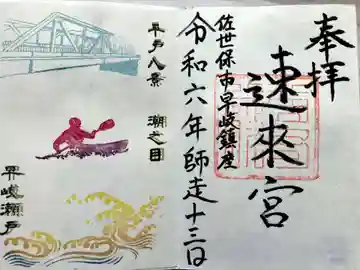 奉拝
速來宮
佐世保市早岐鎮座
令和六年師走十三日
平戸八景 潮之目
早岐瀬戸